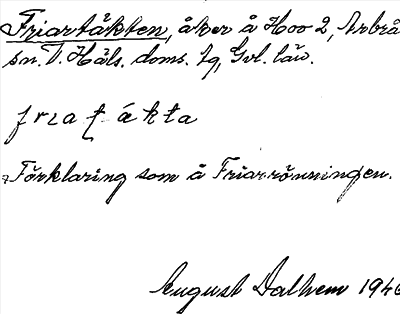 Friartäkten, åker å Hoo 2, Arbrå
sn. V. Häls. doms. tg, Gvl. län.
frıaʈ ákta
Förklaring som å Friarrönningen.
August Dalhem 1946